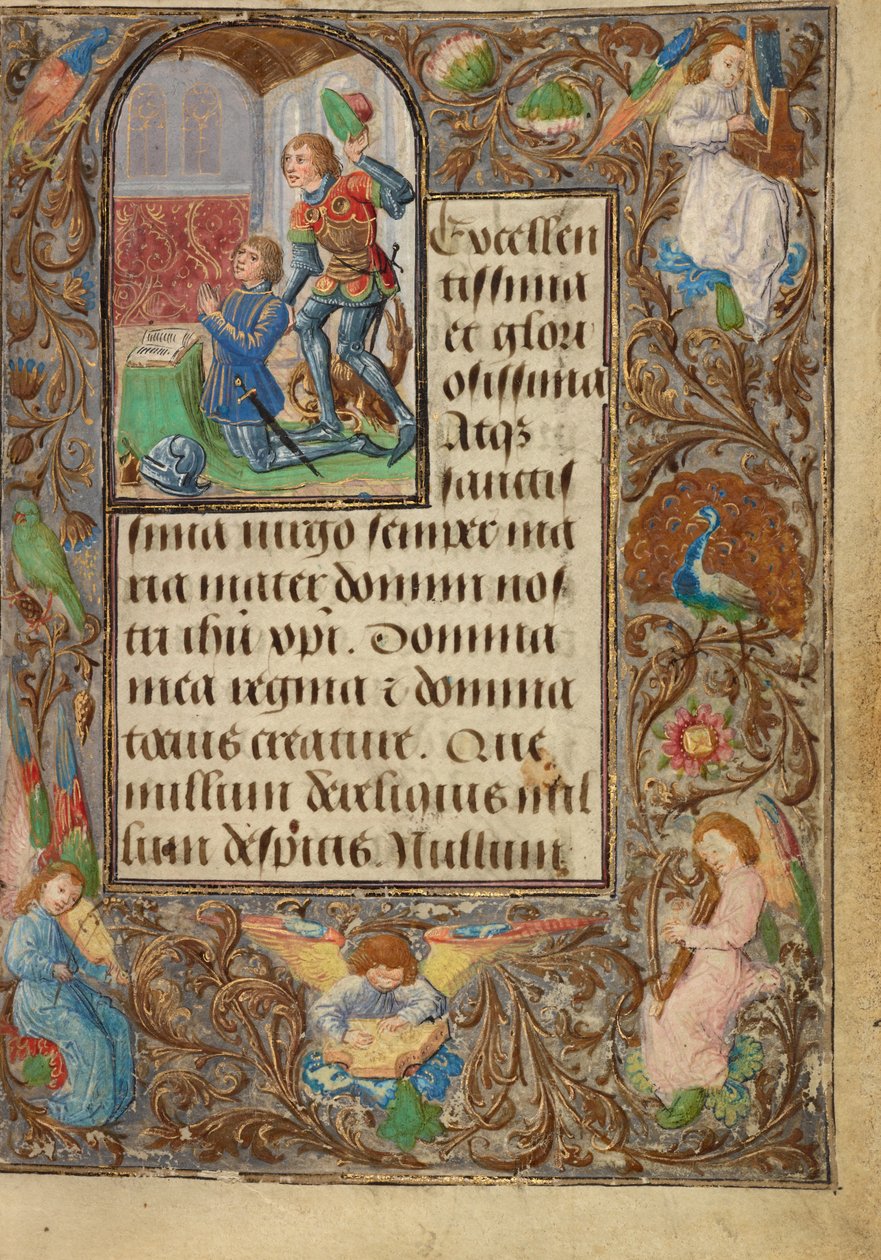 Excellen
tissima
et glori
osissima
Atqꝫ
sanctis
sima virgo semper ma
ria mater domini nos
tri ihũ xp̃i. Domina
mea regina ⁊ domina
tocius creature. Que
nullum dereliquis nul
lum despicis. Nullum